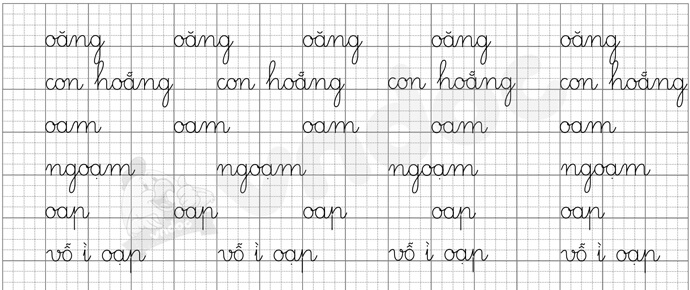 oăng oăng oăng oăng oăng
con hoẵng con hoẵng con hoẵng con hoẵng
oam oam oam oam oam
ngoạm ngoạm ngoạm ngoạm
oap oap oap oap oap
vỗ ì oạp vỗ ì oạp vỗ ì oạp vỗ ì oạp